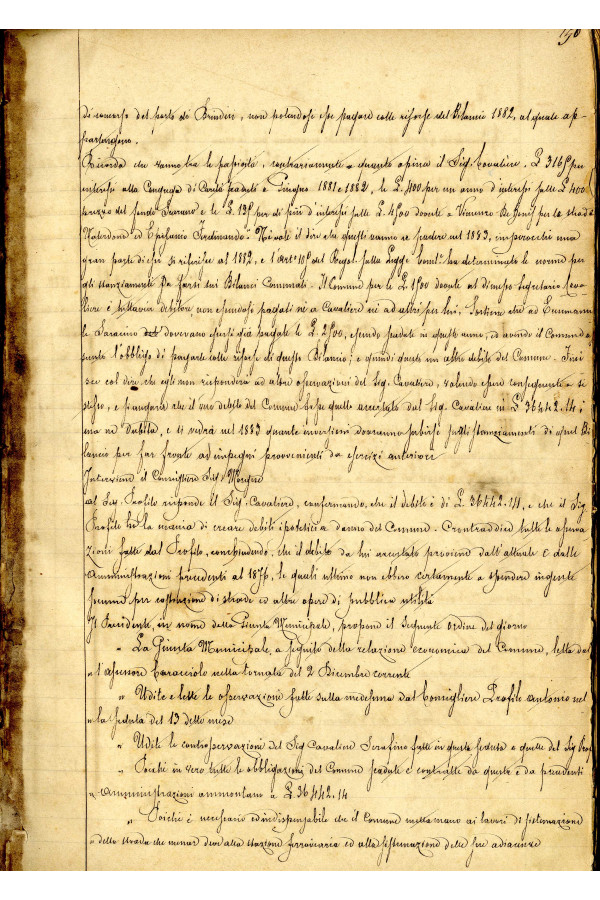 190
di concorso del porto di Brindisi, non potendosi essi pagare colle risorse del Bilancio 1882, al quale ap-
partengono.
Ricorda che vanno tra le passività, contrariamente a quanto opina il Sig. Cavaliere. £ 316 per
interessi alla Congrega di Carità scaduti a Giugno 1881 e 1882, le £. 400 per un anno d'interessi sulle £ 400
prezzo del fondo e le £. per di più d'interessi sulle £ 4500 dovute a Vincenzo per la strada
ed Epifanio Ferdinando. Nè vale il dire che questi vanno a scadere nel 1883, imperocchè una
gran parte di essi si riferisce al 1882, e l'art. del Regol. sulla Legge Comle. ha determinato le norme per
gli stanziamenti da farsi sui Bilanci Comunali. Il Comune per le £ dovute al dimesso Segretario Cava-
liere è tuttavia debitore non essendosi pagati nè a Cavaliere nè ad altri per lui. Sostiene che ad Emmanue-
le Saracino dovevano essersi già pagate le £. 2500, essendo scadute in quest'anno, ed avendo il Comune as-
sunto l'obbligo di pagarle colle risorse di questo Bilancio; e quindi questo un altro debito del Comune. Fini-
sce col dire, che egli non risponderà ad altre osservazioni del Sig. Cavaliere, volendo essere conseguente a se
stesso, e si augura che il vero debito del Comune fosse quello accertato dal Sig. Cavaliere in £ 36442.14;
ma ne dubita, e si vedrà nel 1883 quante inversioni dovranno subirsi sugli stanziamenti di quel Bi-
lancio per far fronte ad impegni provvenienti da esercizi anteriori
Interviene il Consigliere Sig.
Al Sig. Profilo risponde il Sig. Cavaliere, confermando, che il debito è di £. 36442.14, e che il Sig.
Profilo ha la mania di creare debiti ipotetici a danno del Comune. Contraddice tutte le osserva-
zioni fatte dal Profilo, conchiudendo, che il debito da lui accertato proviene dall'attuale e dalle
Amministrazioni precedenti al 1876, le quali ultime non ebbero certamente a spendere ingente
somme per costruzione di strade ed altre opere di pubblica utilità
Il Presidente, in nome della Giunta Municipale, propone il seguente ordine del giorno
" La Giunta Municipale, a seguito della relazione economica del Comune, letta dal
" l'assessore Caracciolo nella tornata del 2 Dicembre corrente
" Udite e lette le osservazioni fatte sulla medesima dal Consigliere Profilo Antonio nel
" la seduta del 13 detto mese
" Udite le controsservazioni del Sig Cavaliere Serafino fatte in questa seduta e quelle del Sig Profilo
" Poichè in vero tutte le obbligazioni del Comune scadute e contratte da questa e da precedenti
" Amministrazioni ammontano a £. 36442.14
" Poichè è necessario ed indispensabile che il Comune metta mano ai lavori di sistemazione
" della strada che menar deve alla stazione ferroviaria ed alla sistemazione delle vie adiacenze